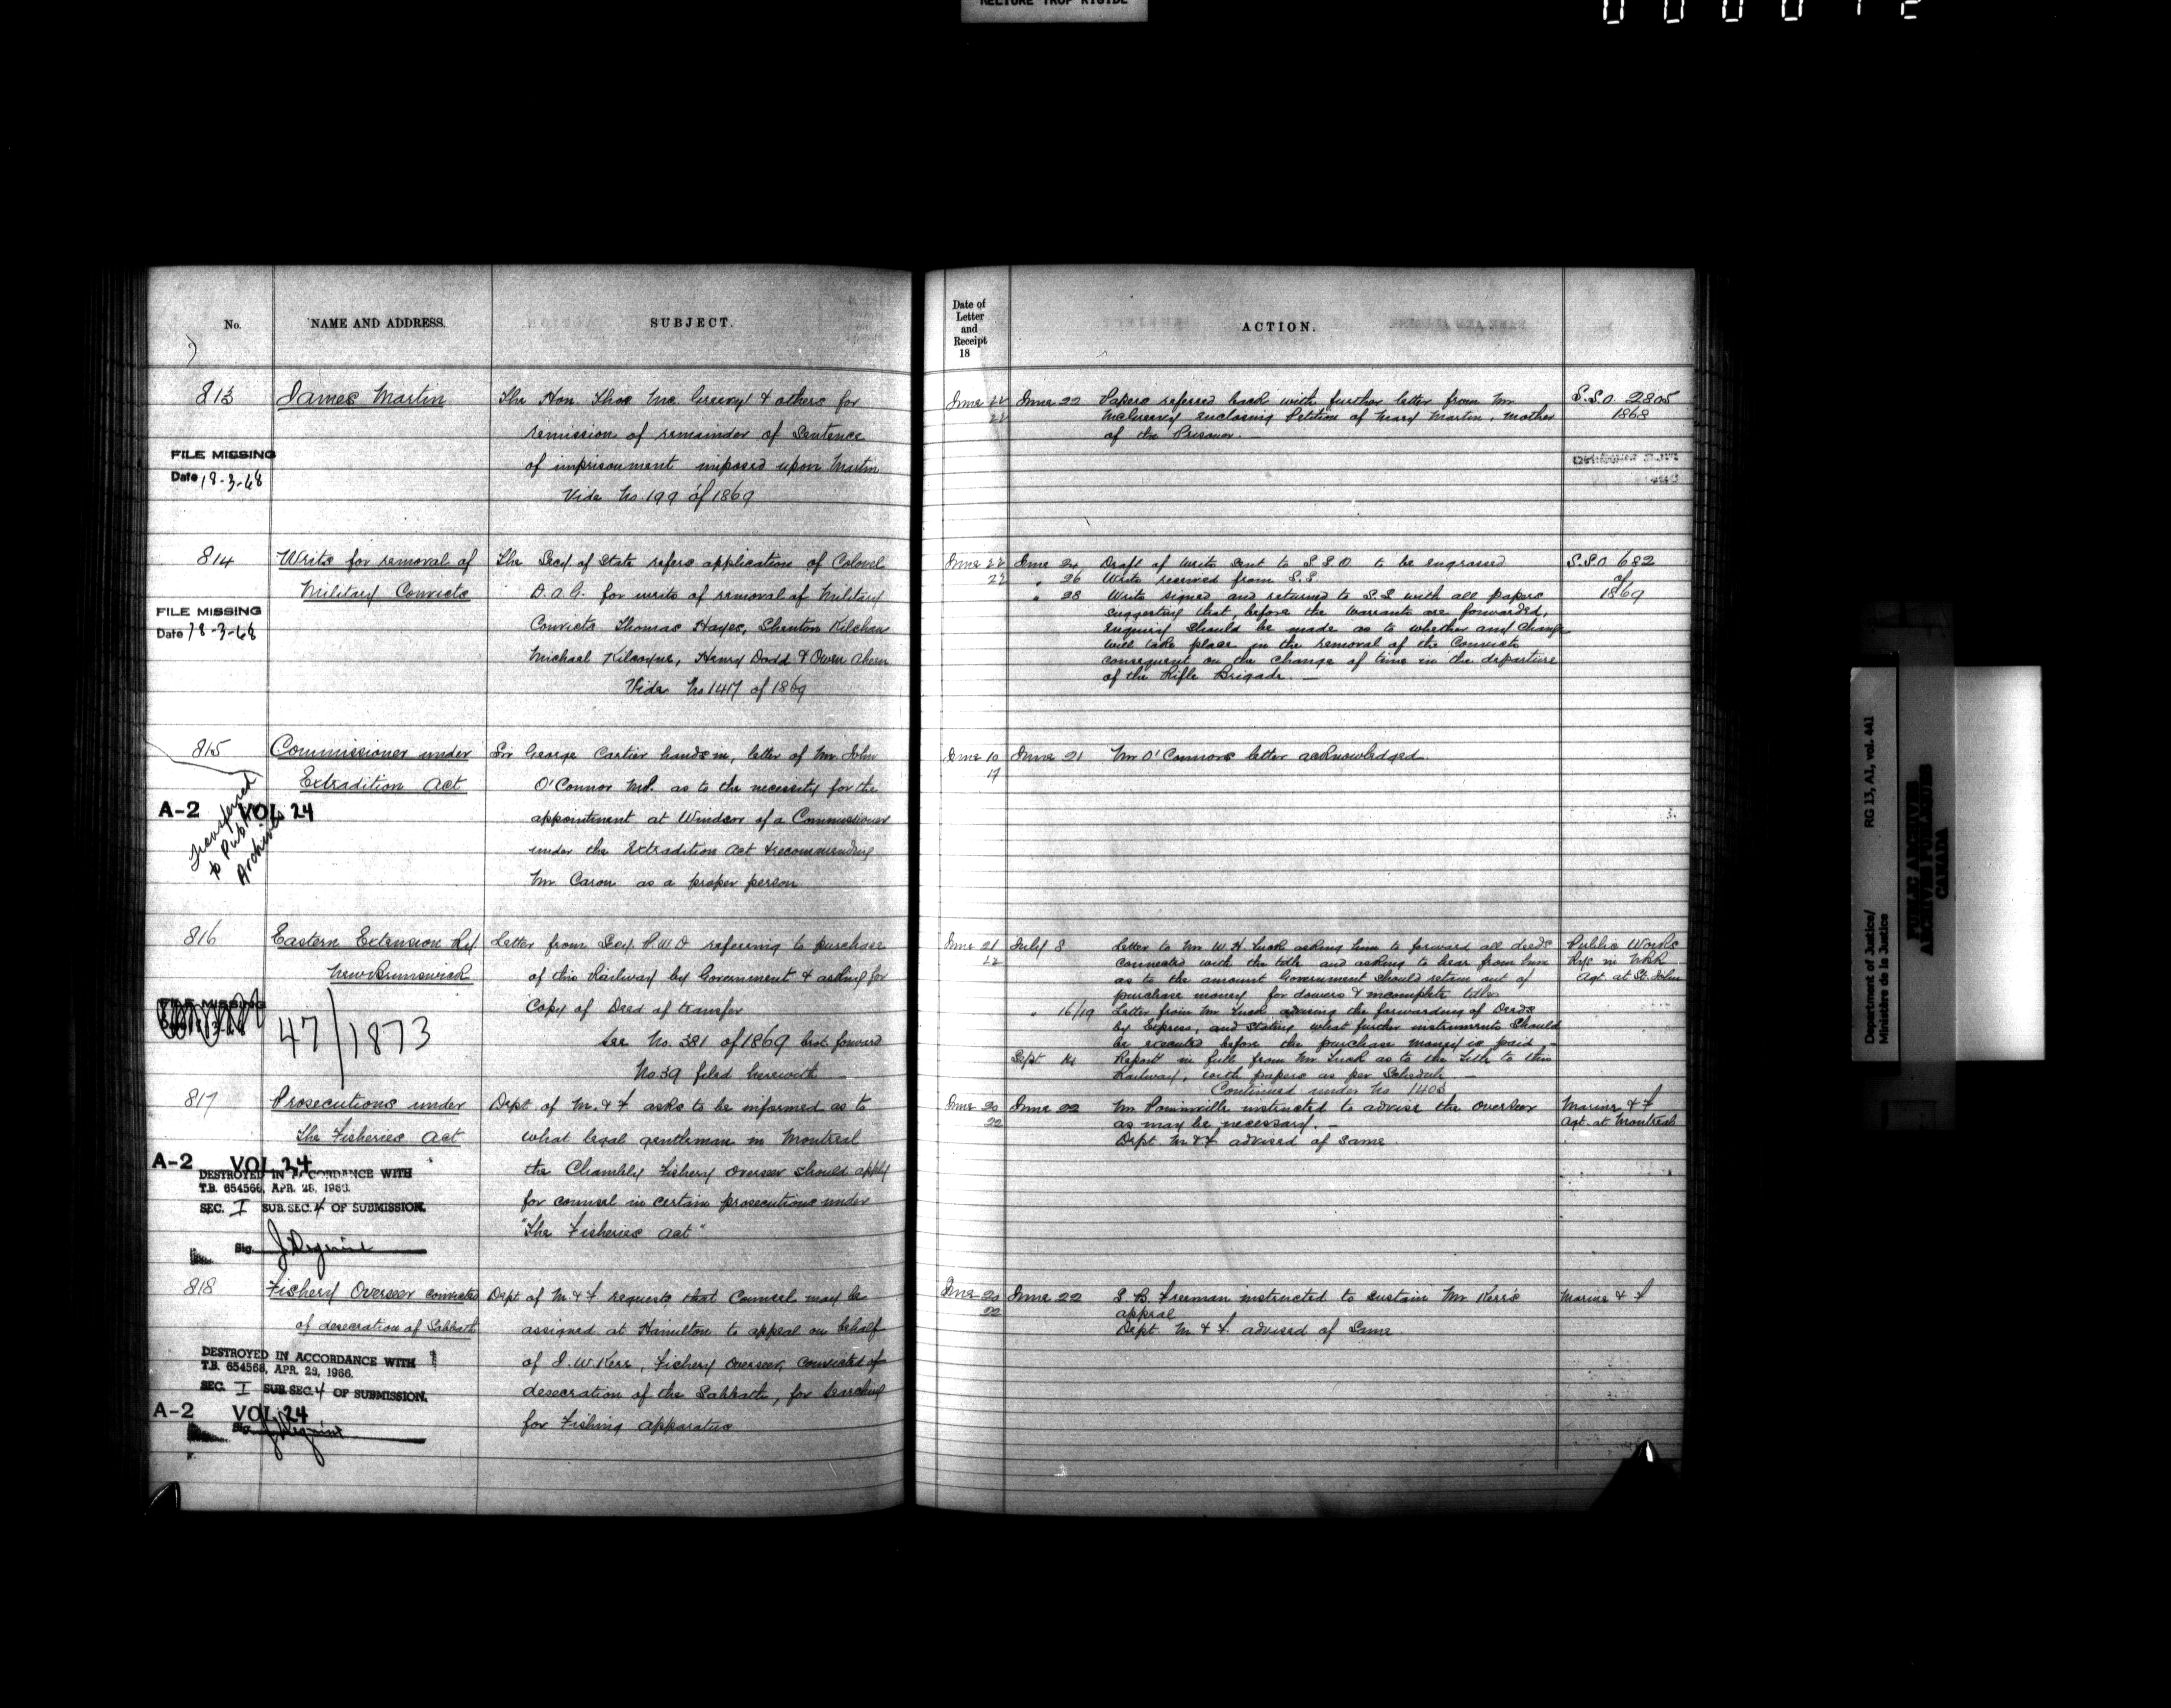 RELIURE TROP RIGIDE
No.
NAME AND ADDRESS.
SUBJECT.
Date of
Letter
and
Receipt
18
ACTION.
813
James Martin
The Hon. Thos McGreevy & others for
remission of remainder of Sentence
of imprisonment imposed upon Martin
Vide No. 199 of 1869
FILE MISSING
Date 18-3-68
June 22
22
June 22 Papers referred back with further letter from Mr
McGreevy enclosing Petition of Mary Martin, mother
of the Prisoner. —
S.S.O. 2805
1868
814
Writs for removal of
Military Convicts
The Secy of State refers application of Colonel
D.A.G. for writs of removal of Military
Convicts Thomas Hayes, Shenton
Michael Kilcoyne, Henry Dodd & Owen Ahern
Vide No 1417 of 1869
FILE MISSING
Date 18-3-68
June 22
22
June 24 Draft of Writs sent to S.S.O to be engrossed
" 26 Writs received from S.S.
" 28 Writs signed and returned to S.S. with all papers
suggesting that, before the Warrants are forwarded,
enquiry should be made as to whether any change
will take place in the removal of the Convicts
consequent on the change of time in the departure
of the Rifle Brigade. —
S.S.O 682
of
1869
815
Commissioner under
Extradition Act
Sir George Cartier hands in, letter of Mr. John
O'Connor M.P. as to the necessity for the
appointment at Windsor of a Commissioner
under the Extradition Act & recommending
Mr Caron as a proper person
A-2 VOL 24
Transferred
to Public
Archives
June 10
17
June 21 Mr O'Connors letter acknowledged
816
Eastern Extension Ry
New Brunswick
Letter from Secy. P.W.D referring to purchase
of this Railway by Government & asking for
Copy of Deed of transfer
See No. 381 of 1869 brot forward
No 39 filed herewith —
FILE MISSING
47/1873
June 21
22
July 8 Letter to Mr W.H. Tuck asking him to forward all deeds
connected with the title and asking to hear from him
as to the amount Government should retain out of
purchase money for dowers & incomplete titles
" 16/19 Letter from Mr Tuck advising the forwarding of Deeds
by Express, and stating what further instruments should
be executed before the purchase money is paid —
Sept 14 Report in full from Mr Tuck as to the title to this
Railway, with papers as per Schedule —
Continued under No 1403
Public Works
Rys in NBK
Agt. at St. John
817
Prosecutions under
The Fisheries Act
Dept of M. & F asks to be informed as to
what legal gentleman in Montreal
the Chambly Fishery Overseer should apply
for counsel in certain prosecutions under
"The Fisheries Act"
A-2 VOL 24
DESTROYED IN ACCORDANCE WITH
T.B. 654568, APR. 28, 1966.
SEC. I SUB.SEC. 4 OF SUBMISSION.
Sig.
June 20
22
June 22 Mr Pominville instructed to advise the overseer
as may be necessary. —
Dept M & F advised of same
Marine & F
Agt. at Montreal
818
Fishery Overseer convicted
of desecration of Sabbath
Dept of M. & F requests that Counsel may be
assigned at Hamilton to appeal on behalf
of J.W. Kerr, Fishery Overseer, convicted of
desecration of the Sabbath, for searching
for Fishing apparatus
DESTROYED IN ACCORDANCE WITH
T.B. 654568, APR. 28, 1966.
SEC. I SUB.SEC. 4 OF SUBMISSION.
A-2 VOL 24
June 20
22
June 22 S.B. Freeman instructed to sustain Mr Kerr's
appeal
Dept M. & F. advised of Same
Marine & F
Department of Justice/
Ministère de la Justice
RG 13, A1, vol. 441
PUBLIC ARCHIVES
ARCHIVES PUBLIQUES
CANADA